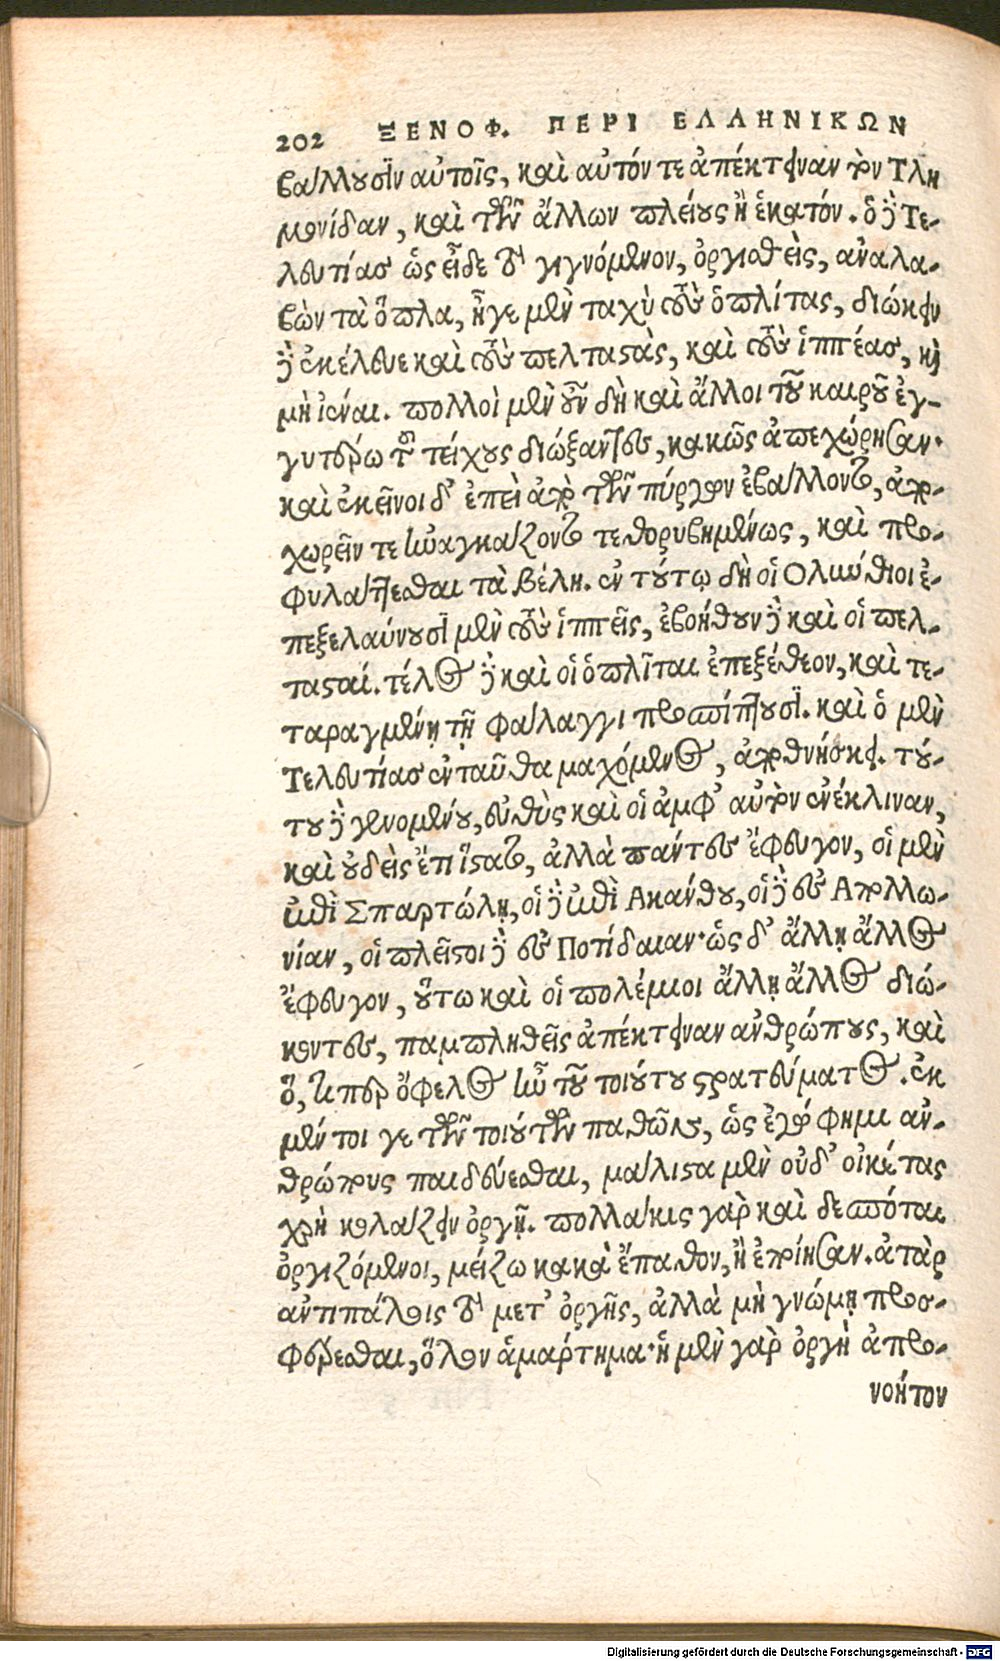 202 ΞΕΝΟΦ. ΠΕΡΙ ΕΛΛΗΝΙΚΩΝ
βάλλουσιν αὐτοῖς, καὶ αὐτόν τε ἀπέκτειναν τὸν Τλη
μονίδαν, καὶ τῶν ἄλλων πλείους ἢ ἑκατόν. ὁ δὲ Τε-
λευτίας ὡς εἶδε τὸ γιγνόμενον, ὀργισθεὶς, ἀναλα-
βὼν τὰ ὅπλα, ἦγε μὲν ταχὺ τοὺς ὁπλίτας, διώκειν
δὲ ἐκέλευε καὶ τοὺς πελταστὰς, καὶ τοὺς ἱππέας, καὶ
μὴ ἰέναι. πολλοὶ μὲν οὖν δὴ καὶ ἄλλοι τοῦ καιροῦ ἐγ-
γυτέρω τοῦ τείχους διώξαντες, κακῶς ἀπεχώρησαν·
καὶ ἐκεῖνοι δ' ἐπεὶ ἀπὸ τῶν πύργων ἐβάλλοντο, ἀπο-
χωρεῖν τε ἠναγκάζοντο τεθορυβημένως, καὶ προ-
φυλάττεσθαι τὰ βέλη. ἐν τούτῳ δὴ οἱ Ολύνθιοι ἐ-
πεξελαύνουσι μὲν τοὺς ἱππεῖς, ἐβοήθουν δὲ καὶ οἱ πελ-
τασταί. τέλος δὲ καὶ οἱ ὁπλῖται ἐπεξέθεον, καὶ τε-
ταραγμένῃ τῇ φάλαγγι προσπίπτουσι. καὶ ὁ μὲν
Τελευτίας ἐνταῦθα μαχόμενος, ἀποθνήσκει. τού-
του δὲ γενομένου, εὐθὺς καὶ οἱ ἀμφ' αὐτὸν ἐνέκλιναν,
καὶ οὐδεὶς ἔτι ἵστατο, ἀλλὰ πάντες ἔφευγον, οἱ μὲν
ἐπὶ Σπαρτώλῃ, οἱ δὲ ἐπὶ Ακάνθου, οἱ δὲ ἐς Απολλω-
νίαν, οἱ πλεῖστοι δὲ ἐς Ποτίδαιαν· ὡς δ' ἄλλῃ ἄλλος
ἔφευγον, οὕτω καὶ οἱ πολέμιοι ἄλλῃ ἄλλος διώ-
κοντες, παμπληθεῖς ἀπέκτειναν ἀνθρώπους, καὶ
ὅ, τι περ ὄφελος ἦν τοῦ τοιούτου στρατεύματος. ἐκ
μέν τοι γε τῶν τοιούτων παθῶν, ὡς ἐγώ φημι ἀν-
θρώπους παιδεύεσθαι, μάλιστα μὲν οὐδ' οἰκέτας
χρὴ κολάζειν ὀργῇ. πολλάκις γὰρ καὶ δεσπόται
ὀργιζόμενοι, μείζω κακὰ ἔπαθον, ἢ ἐποίησαν. ἀτὰρ
ἀντιπάλοις τὸ μετ' ὀργῆς, ἀλλὰ μὴ γνώμῃ προσ-
φέρεσθαι, ὅλον ἁμάρτημα· ἡ μὲν γὰρ ὀργὴ ἀπρο-
νοήτον
Digitalisierung gefördert durch die Deutsche Forschungsgemeinschaft - DFG